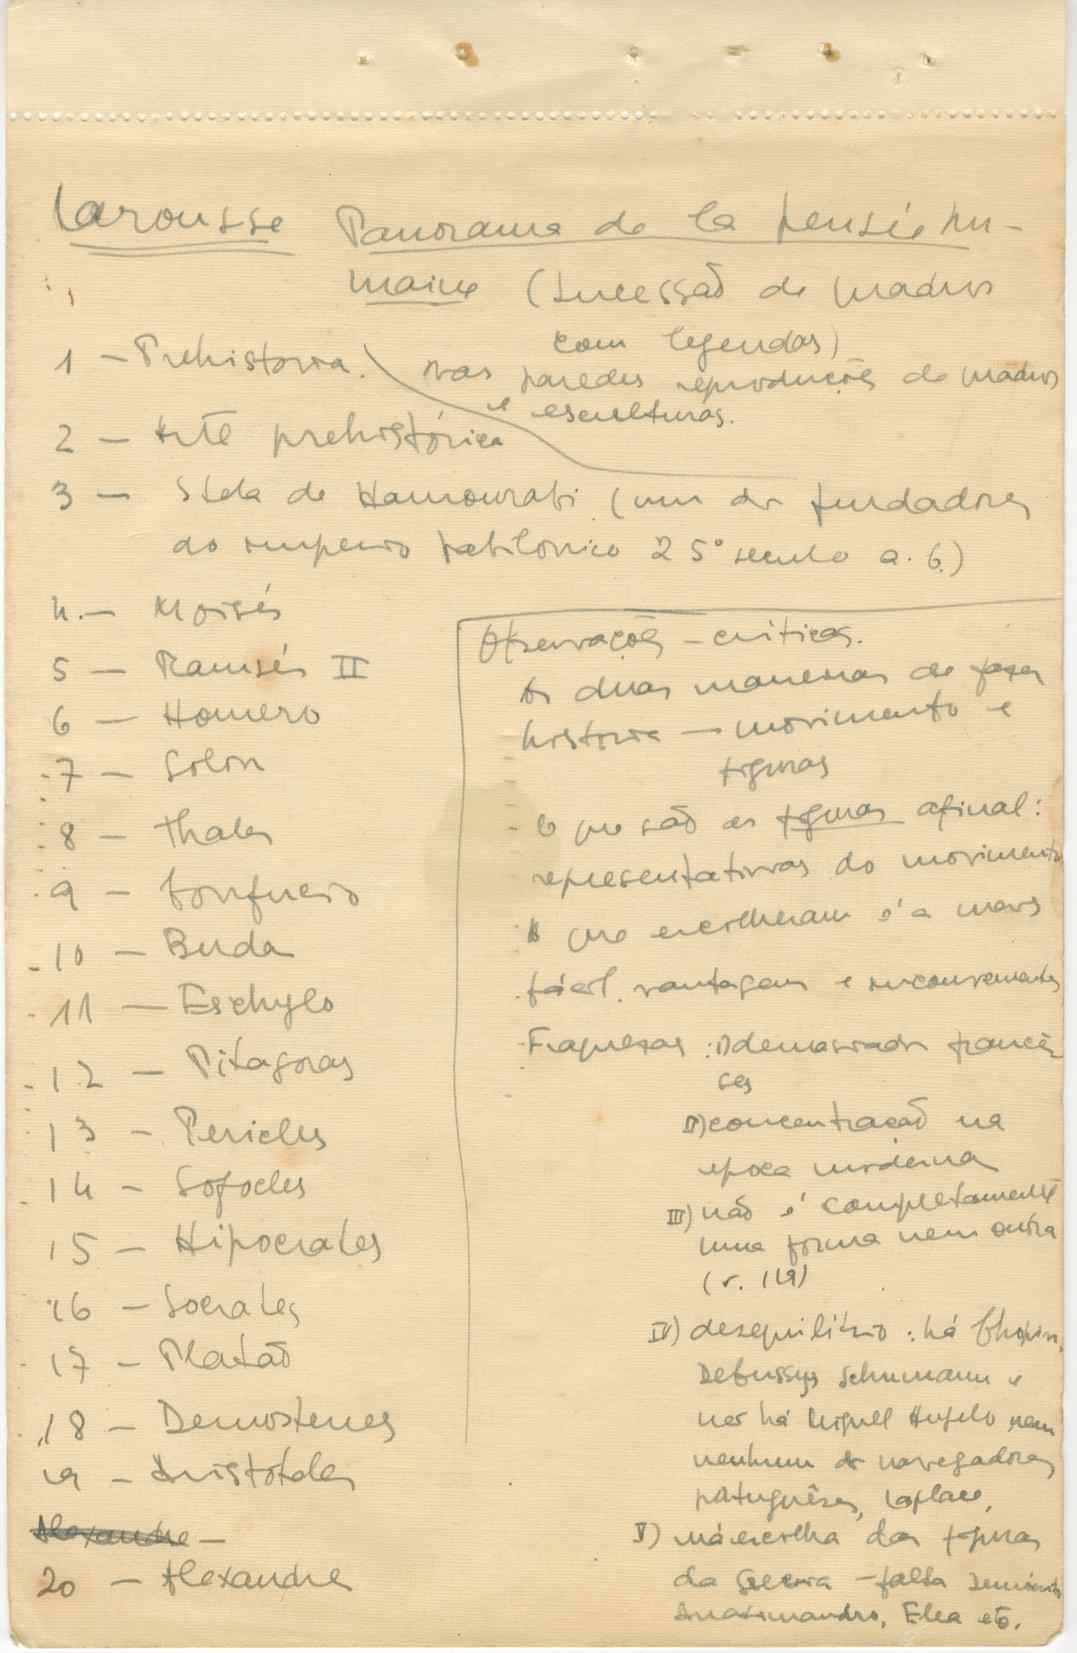 Larousse Panorama de la pensée hu-
maine (sucessão de quadros
com legendas)
1 - Prehistoria. nas paredes reproduções de quadros
e esculturas.
2 - Arte prehistórica
3 - Stela de Hamourabi (um dos fundadores
do imperio babilonico 25º seculo a. C.)
4. - Moisés
5 - Ramsés II
6 - Homero
7 - Solon
8 - Thales
9 - Confucio
10 - Buda
11 - Eschylo
12 - Pitagoras
13 - Pericles
14 - Sofocles
15 - Hipocrates
16 - Socrates
17 - Platão
18 - Demostenes
19 - Aristoteles
Alexandre -
20 - Alexandre
Observações - criticas.
As duas maneiras de fazer
historia - movimento e
figuras
O que são as figuras afinal:
representativas do movimento
A que escolheram é a mais
fácil. vantagens e inconvenientes
Fraquezas: I) demasiados france
ses
II) concentração na
epoca moderna
III) não é completamente
uma forma nem outra
(v. 119)
IV) desequilibrio: há Chopin,
Debussy, Schumann e
não há Miguel Angelo, nem
nenhum dos navegadores
portuguêses, Laplace,
V) má escolha das figuras
da Grecia - falta Demócrito
Anaximandro, Elea etc.